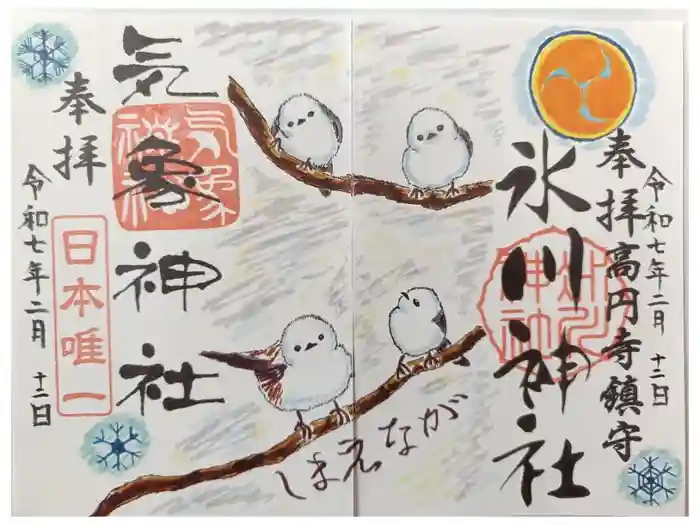 令和七年二月十二日
奉拝高円寺鎮守
氷川神社
しまえなが
気象神社
日本唯一
奉拝
令和七年二月十二日